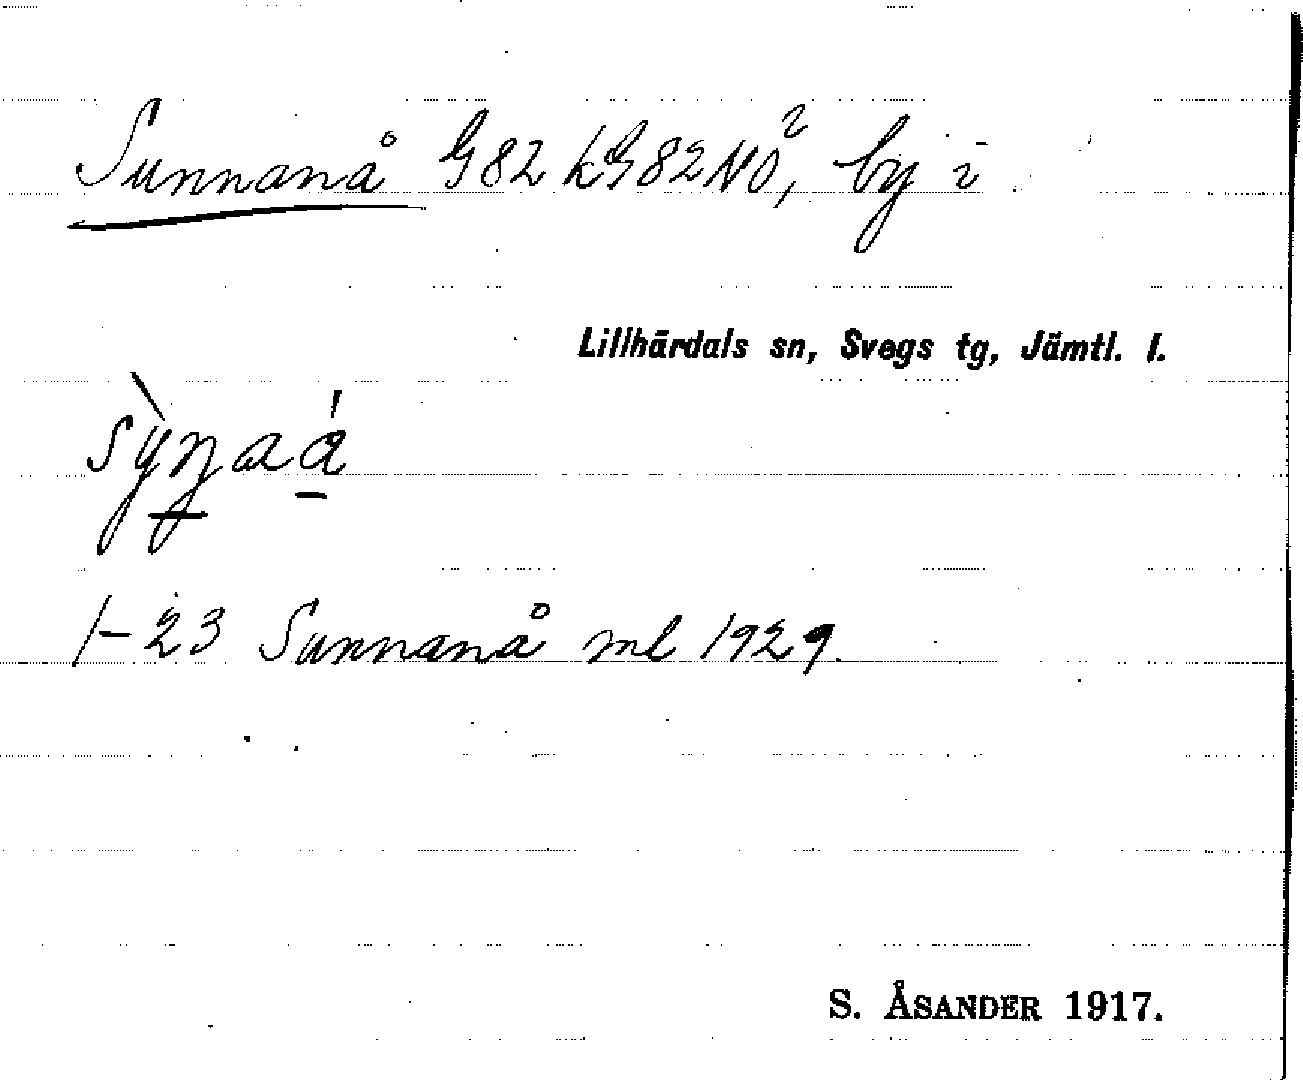 Sunnanå G82 kG82NO², by i
Lillhärdals sn, Svegs tg, Jämtl. l.
1–23 Sunnanå ml 1929.
S. ÅSANDER 1917.